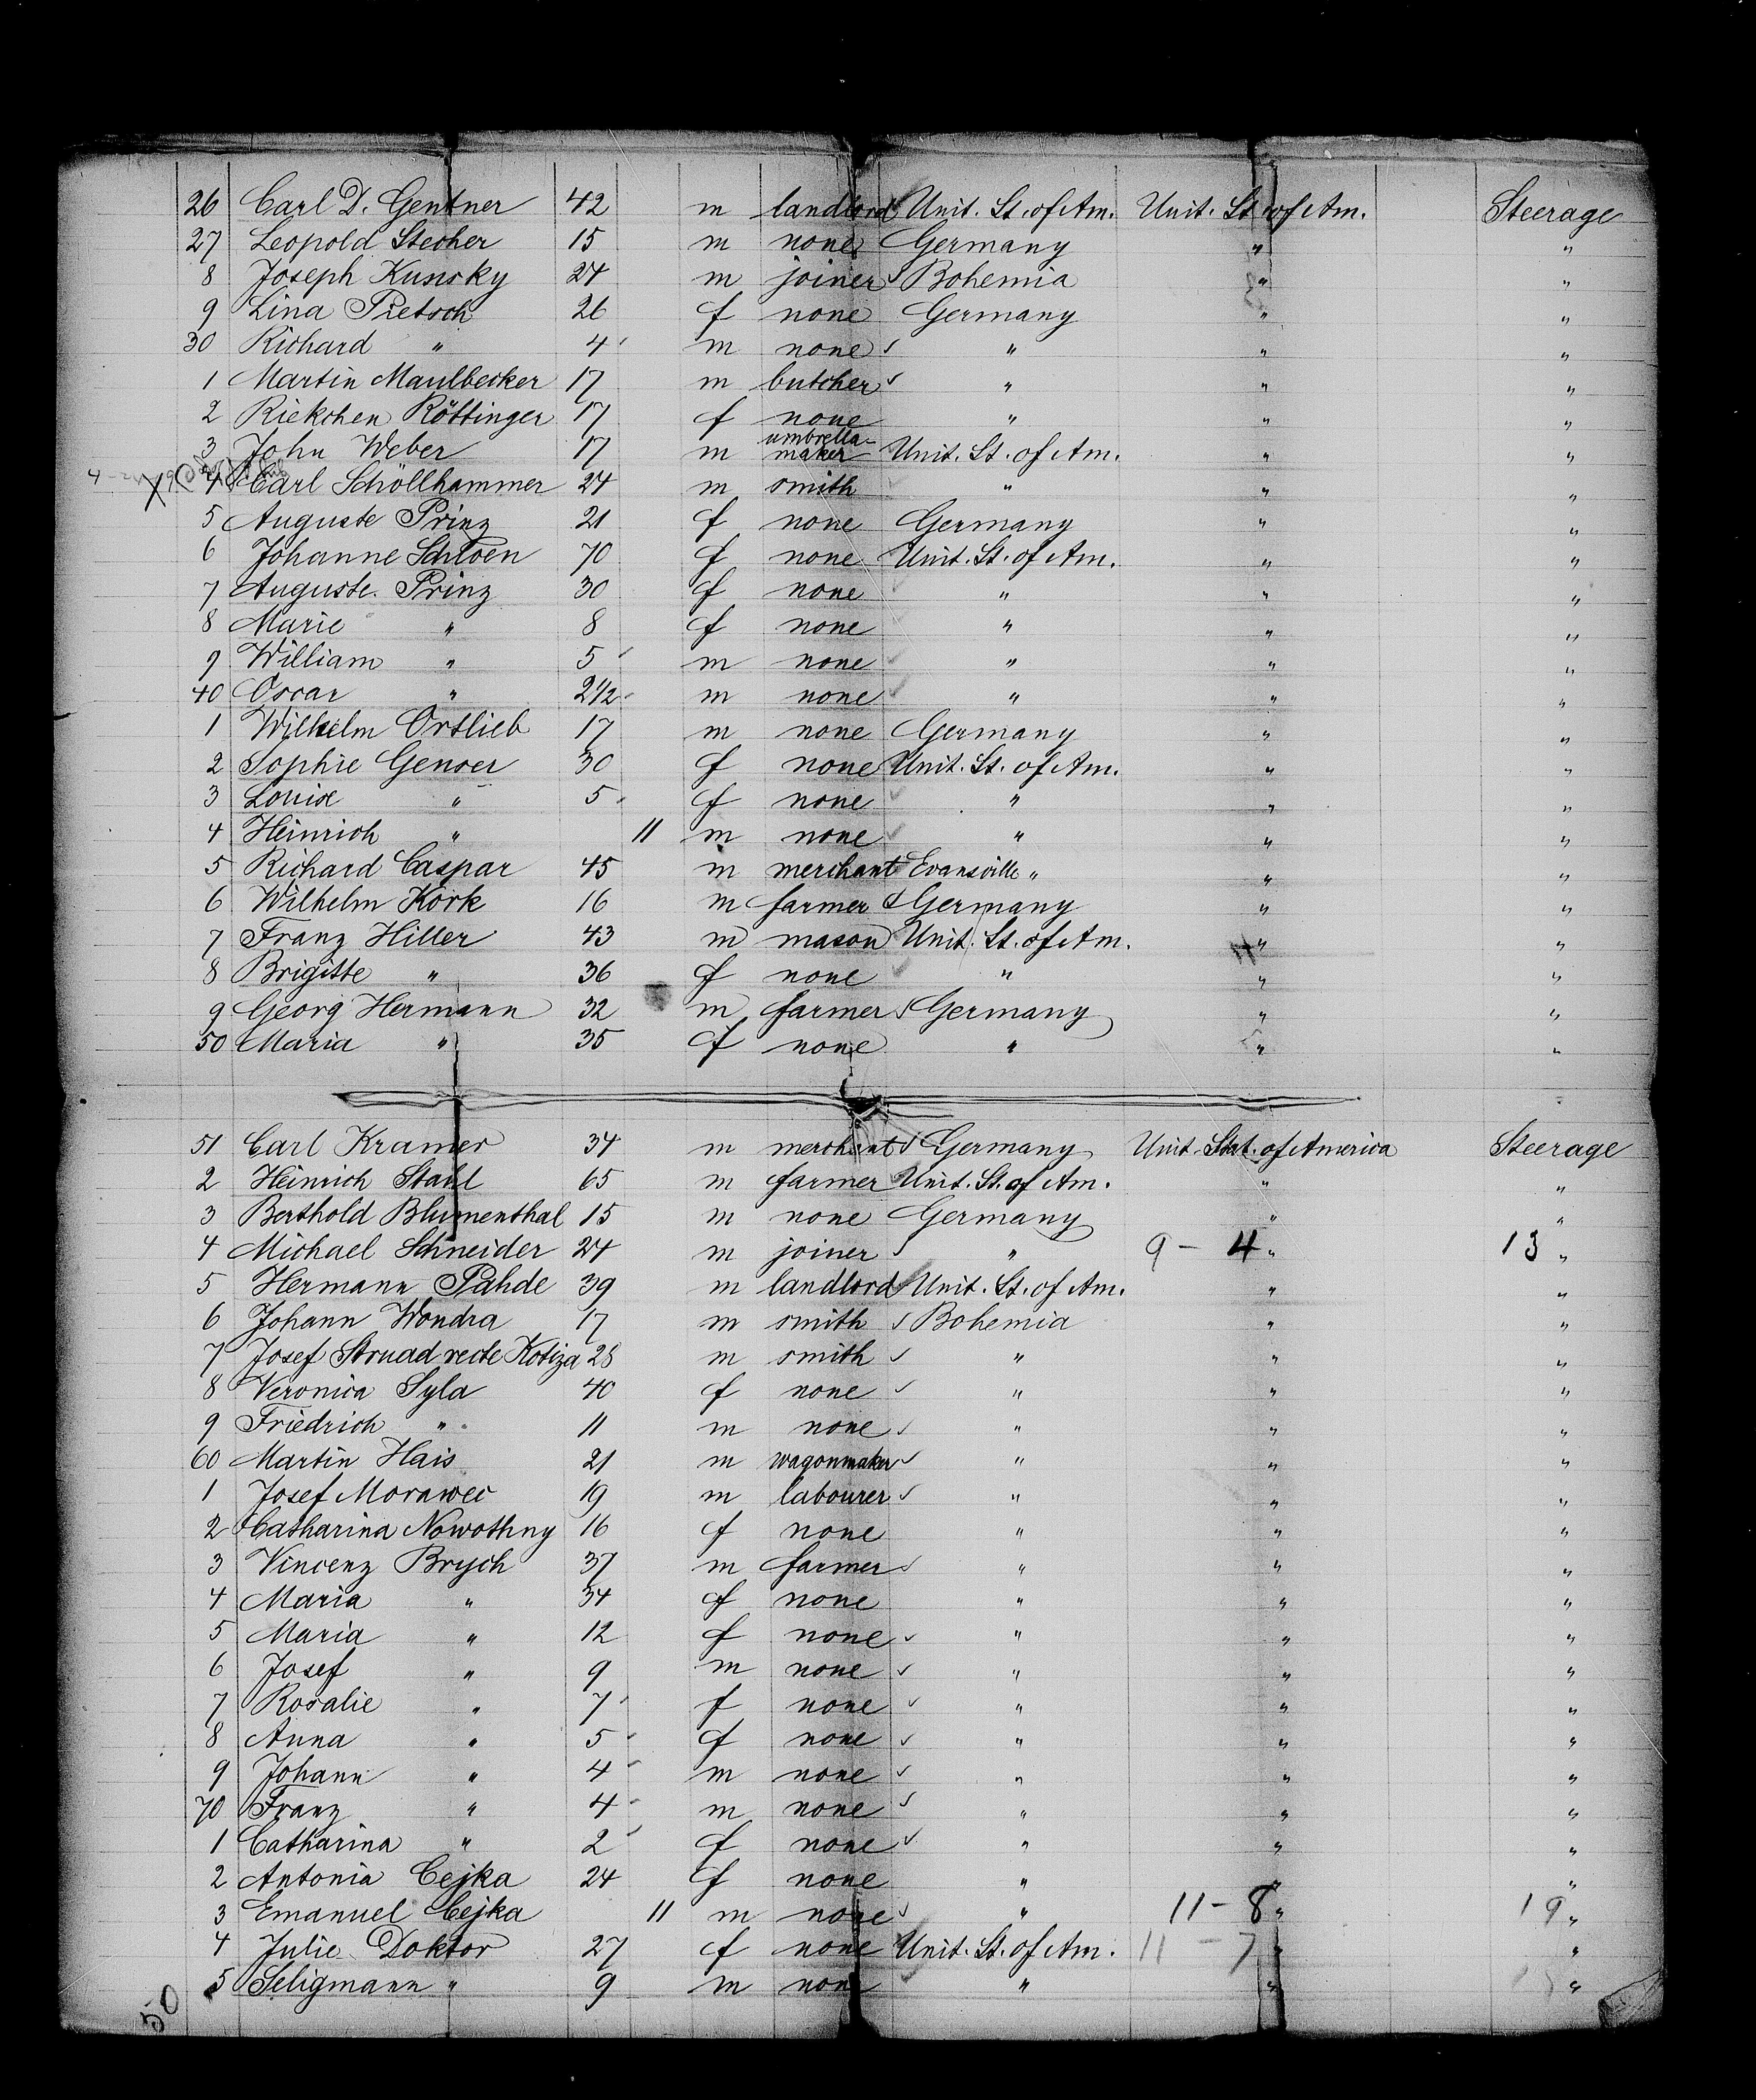 26 Carl D. Gentner 42 m landlord Unit. St. of Am. Unit. St. of Am. Steerage
27 Leopold Stecher 15 m none Germany " "
8 Joseph Kunsky 24 m joiner Bohemia " "
9 Lina Pietsch 26 f none Germany " "
30 Richard " 4 m none " " "
1 Martin Maulbecker 17 m butcher " " "
2 Riekchen Röttinger 17 f none " " "
3 John Weber 17 m umbrella-maker Unit. St. of Am. " "
4 Carl Schöllhammer 24 m smith " " "
5 Auguste Prinz 21 f none Germany " "
6 Johanne Schloen 70 f none Unit. St. of Am. " "
7 Auguste Prinz 30 f none " " "
8 Marie " 8 f none " " "
9 William " 5 m none " " "
40 Oscar " 2 1/2 m none " " "
1 Wilhelm Ortlieb 17 m none Germany " "
2 Sophie Genser 30 f none Unit. St. of Am. " "
3 Louise " 5 f none " " "
4 Heinrich " 11 m none " " "
5 Richard Caspar 45 m merchant Evansville " " "
6 Wilhelm Kork 16 m farmer Germany " "
7 Franz Hiller 43 m mason Unit. St. of Am. " "
8 Brigitte " 36 f none " " "
9 Georg Hermann 32 m farmer Germany " "
50 Maria " 35 f none " " "
51 Carl Kramer 34 m merchant Germany Unit. Stat. of America Steerage
2 Heinrich Stahl 65 m farmer Unit. St. of Am. " "
3 Berthold Blumenthal 15 m none Germany " "
4 Michael Schneider 24 m joiner " 9 - 4 " 13 "
5 Hermann Pahde 39 m landlord Unit. St. of Am. " "
6 Johann Wondra 17 m smith Bohemia " "
7 Josef Struad recte Kotiza 28 m smith " " "
8 Veronica Syla 40 f none " " "
9 Friedrich " 11 m none " " "
60 Martin Hais 21 m wagonmaker " " "
1 Josef Morawec 19 m labourer " " "
2 Catharina Nowothny 16 f none " " "
3 Vincenz Brych 37 m farmer " " "
4 Maria " 34 f none " " "
5 Maria " 12 f none " " "
6 Josef " 9 m none " " "
7 Rosalie " 7 f none " " "
8 Anna " 5 f none " " "
9 Johann " 4 m none " " "
70 Franz " 4 m none " " "
1 Catharina " 2 f none " " "
2 Antonia Cejka 24 f none " " "
3 Emanuel Cejka 11 m none " 11 - 8 " 19 "
4 Julie Doktor 27 f none Unit. St. of Am. 11 - 7 " "
5 Seligmann " 9 m none " " "
50